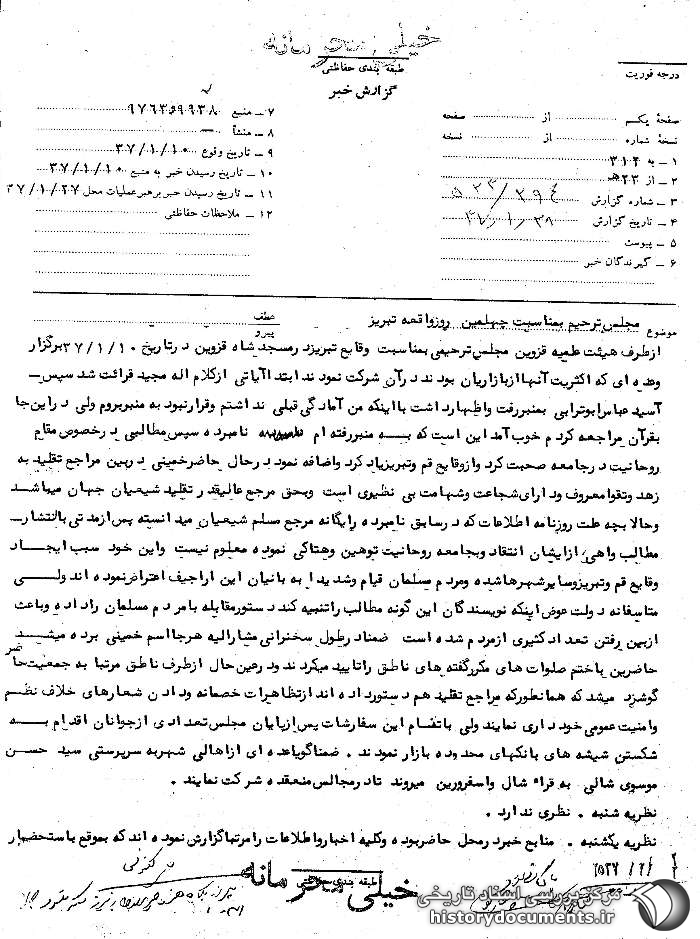 خیلی محرمانه
طبقه بندی حفاظتی
درجه فوریت
گزارش خبر
صفحهٔ یکم از صفحه
نسخهٔ شماره از نسخه
۱ – به ۳۱۲
۲ – از ۲۳ هـ
۳ – شماره گزارش ۵۲۳/۲۹۴
۴ – تاریخ گزارش ۳۷/۱/۲۸
۵ – پیوست
۶ – گیرندگان خبر
۷ – منبع
۸ – منشأ
۹ – تاریخ وقوع ۳۷/۱/۱۰
۱۰ – تاریخ رسیدن خبر به منبع ۳۷/۱/۱۰
۱۱ – تاریخ رسیدن خبر برهبر عملیات محل ۳۷/۱/۲۷
۱۲ – ملاحظات حفاظتی
موضوع مجلس ترحیم بمناسبت چهلمین روز واقعه تبریز
عطف
پیرو
از طرف هیئت علمیه قزوین مجلس ترحیمی بمناسبت وقایع تبریز در مسجد شاه قزوین در تاریخ ۳۷/۱/۱۰ برگزار
وعده ای که اکثریت آنها از بازاریان بودند در آن شرکت نمودند ابتدا آیاتی از کلام اله مجید قرائت شد سپس –
آسید عباس ابوترابی بمنبر رفت و اظهار داشت با اینکه من آمادگی قبلی نداشتم و قرار نبود به منبر بروم ولی در این جا
بقرآن مراجعه کردم خوب آمد این است که به منبر رفته ام نامبرده سپس مطالبی در خصوص مقام
روحانیت در جامعه صحبت کرد و از وقایع قم و تبریز یاد کرد و اضافه نمود در حال حاضر خمینی در بین مراجع تقلید به
زهد و تقوا معروف و دارای شجاعت و شهامت بی نظیری است و بحق مرجع عالیقدر تقلید شیعیان جهان میباشد
وحالا بچه علت روزنامه اطلاعات که در سابق نامبرده را یگانه مرجع مسلم شیعیان میدانسته پس از مدتی با انتشار –
مطالب واهی از ایشان انتقاد و بجامعه روحانیت توهین و هتاکی نموده معلوم نیست و این خود سبب ایجاد
وقایع قم و تبریز و سایر شهرها شده و مردم مسلمان قیام و شدیدا به بانیان این اراجیف اعتراض نموده اند ولی
متاسفانه دولت عوض اینکه نویسندگان این گونه مطالب را تنبیه کند دستور مقابله با مردم مسلمان را داده و باعث
از بین رفتن تعداد کثیری از مردم شده است ضمنا در طول سخنرانی مشارالیه هرجا اسم خمینی برده میشد
حاضرین با ختم صلوات های مکرر گفته های ناطق را تایید میکردند و در عین حال از طرف ناطق مرتبا به جمعیت حاضر
گوشزد میشد که همانطور که مراجع تقلید هم دستور داده اند از تظاهرات خصمانه و دادن شعارهای خلاف نظم
و امنیت عمومی خودداری نمایند ولی با تمام این سفارشات پس از پایان مجلس تعدادی از جوانان اقدام به
شکستن شیشه های بانکهای محدوده بازار نمودند . ضمنا گویا عده ای از اهالی شهر به سرپرستی سید حسن
موسوی شالی به قراء شال و اسفرورین میروند تا در مجالس منعقده شرکت نمایند .
نظریه شنبه . نظری ندارد .
نظریه یکشنبه . منابع خبر در محل حاضر بوده و کلیه اخبار و اطلاعات را مرتبا گزارش نموده اند که بموقع باستحضار
طبقه بندی حفاظتی
خیلی محرمانه
مرکز بررسی اسناد تاریخی
historydocuments.ir